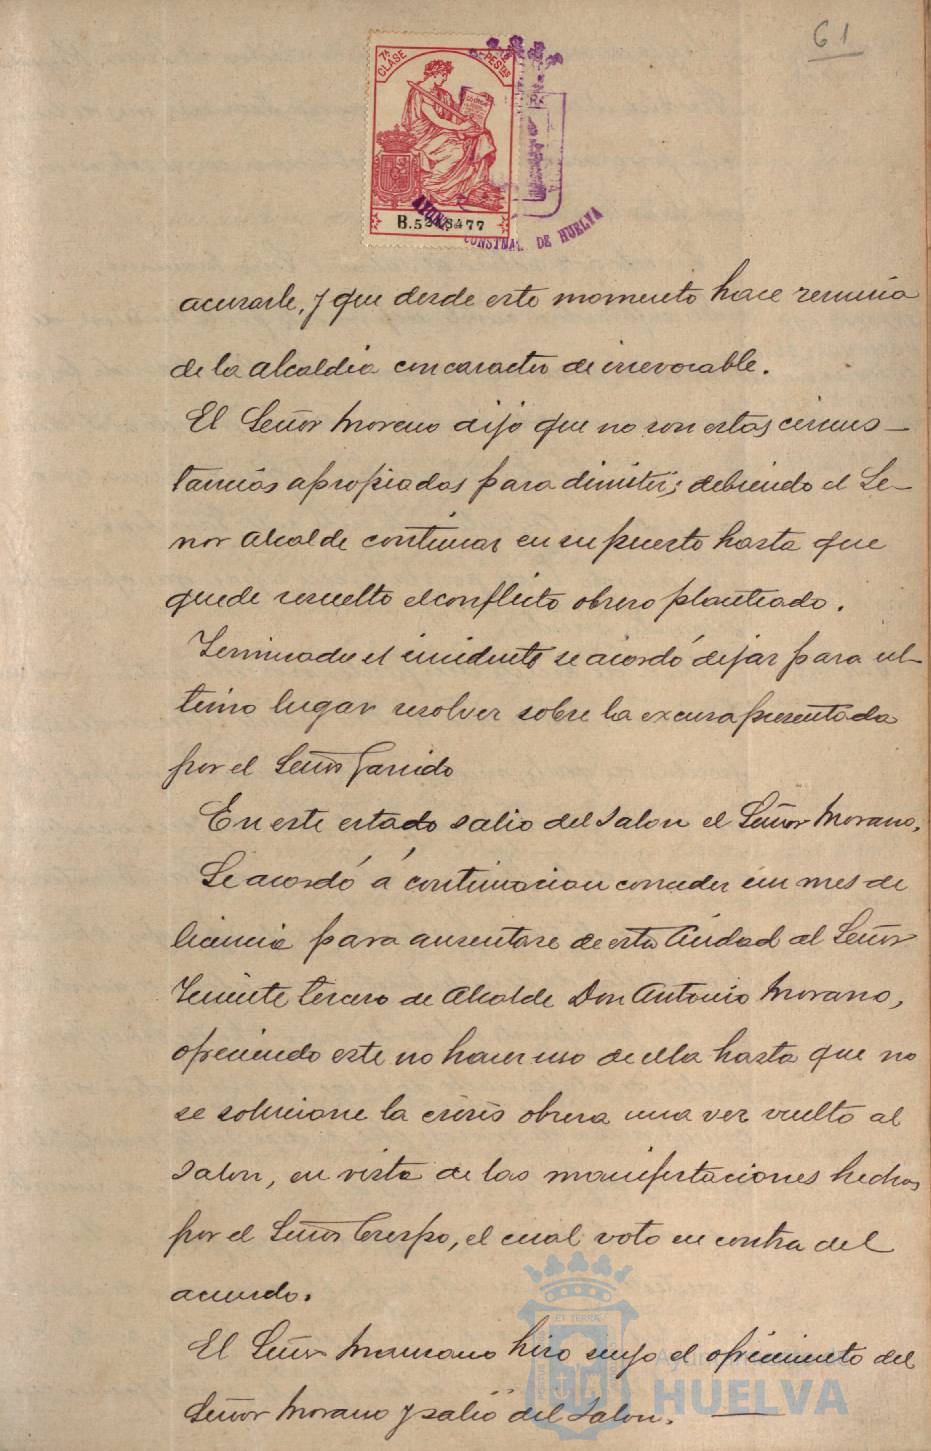 61
7ª CLASE
PESETAS
B.5
77
CONSTNAL DE HUELVA
acusarle, y que desde este momento hace renuncia
de la alcaldia con caracter de irrevocable.
El Señor Moreno dijo que no son estas circuns-
tancias apropiadas para dimitir; debiendo el Se-
ñor Alcalde continuar en su puesto hasta que
quede resuelto el conflicto obrero planteado.
Terminado el incidente se acordó dejar para ul-
timo lugar resolver sobre la excusa presentada
por el Señor Garrido
En este estado salio del salon el Señor Morano.
Se acordó á continuacion conceder un mes de
licencia para ausentarse de esta Ciudad al Señor
Teniente tercero de Alcalde Don Antonio Morano,
ofreciendo este no hacer uso de ella hasta que no
se solucione la crisis obrera una vez vuelto al
salon, en vista de las manifestaciones hechas
por el Señor Crespo, el cual voto en contra del
acuerdo.
El Señor Manzano hizo suyo el ofrecimiento del
Señor Morano y salió del salon.
Ayuntamiento de
HUELVA